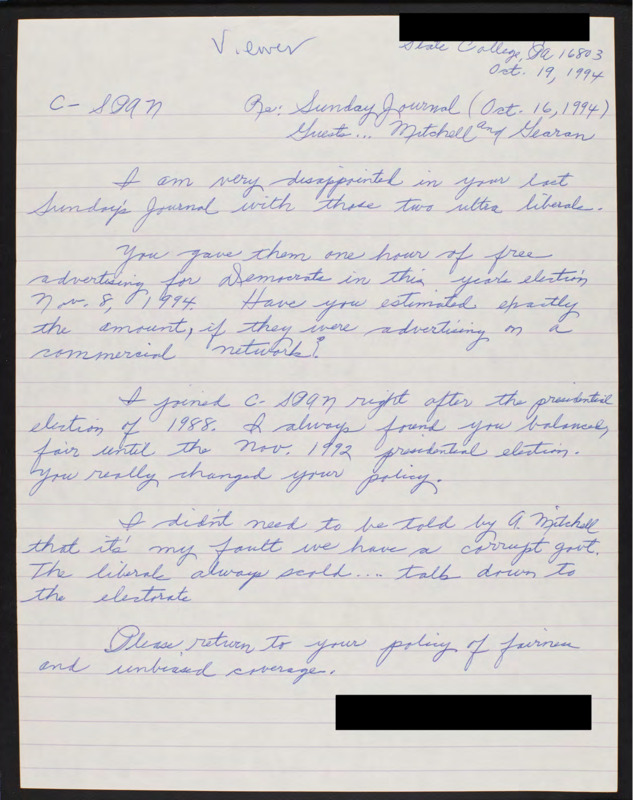 Viewer
State College, Pa. 16803
Oct. 19, 1994
C-SPAN Re: Sunday Journal (Oct. 16, 1994)
Guests... Mitchell and Gearan
I am very disappointed in your last
Sunday's Journal with those two ultra liberals.
You gave them one hour of free
advertising for Democrats in this year's election
Nov. 8, 1994. Have you estimated exactly
the amount, if they were advertising on a
commercial network?
I joined C-SPAN right after the presidential
election of 1988. I always found you balanced,
fair until the Nov. 1992 presidential election.
You really changed your policy.
I didn't need to be told by A. Mitchell
that it's my fault we have a corrupt govt.
The liberals always scold.... talk down to
the electorate
Please, return to your policy of fairness
and unbiased coverage.